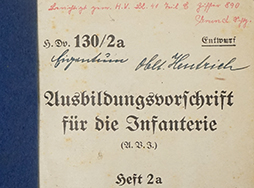 gem. H.V. Bl. 41 Teil C Ziffer 590
H. Dv. 130/2a Entwurf
Eigentum Oblt. Hentrich
Ausbildungsvorschrift
für die Infanterie
(A. V. I.)
Heft 2a